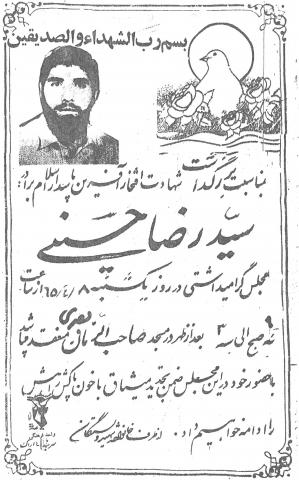 بسم رب الشهداء والصدیقین
بمناسبت بزرگداشت شهادت افتخارآفرین پاسدار اسلام برادر:
سید رضا حسنی
مجلس گرامیداشتی در روز یکشنبه ۶۵/۴/۸ از ساعت
۹ صبح الی ۳ بعد از ظهر در مسجد صاحب الزمان منعقد میباشد
با حضور خود در این مجلس ضمن تجدید میثاق با خون پاکش راهش
را ادامه خواهیم داد.
از طرف خانواده شهید و بستگان